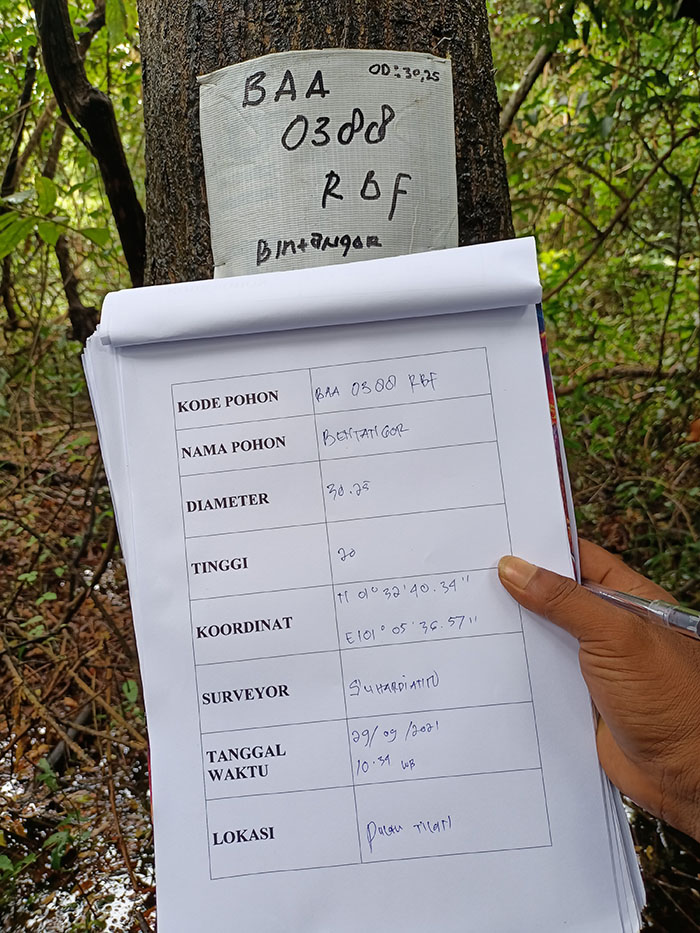 BAA OD: 30,25
0388
RBF
Bintangor
KODE POHON BAA 0388 RBF
NAMA POHON BENTANGOR
DIAMETER 30.25
TINGGI 20
KOORDINAT N 01° 32' 40.34"
E101° 05' 36.57"
SURVEYOR
TANGGAL 29/09/2021
WAKTU 10.34 WIB
LOKASI Pulau